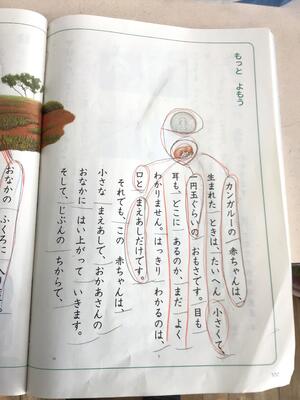 もっと よもう
カンガルーの 赤ちゃんは、
生まれた ときは、たいへん 小さくて、
一円玉ぐらいの おもさです。目も
耳も、どこに あるのか、まだ よく
わかりません。はっきり わかるのは、
口と まえあしだけです。
それでも、この 赤ちゃんは、
小さな まえあしで、おかあさんの
おなかに はい上がって いきます。
そして、じぶんの ちからで、
おなかの ふくろに